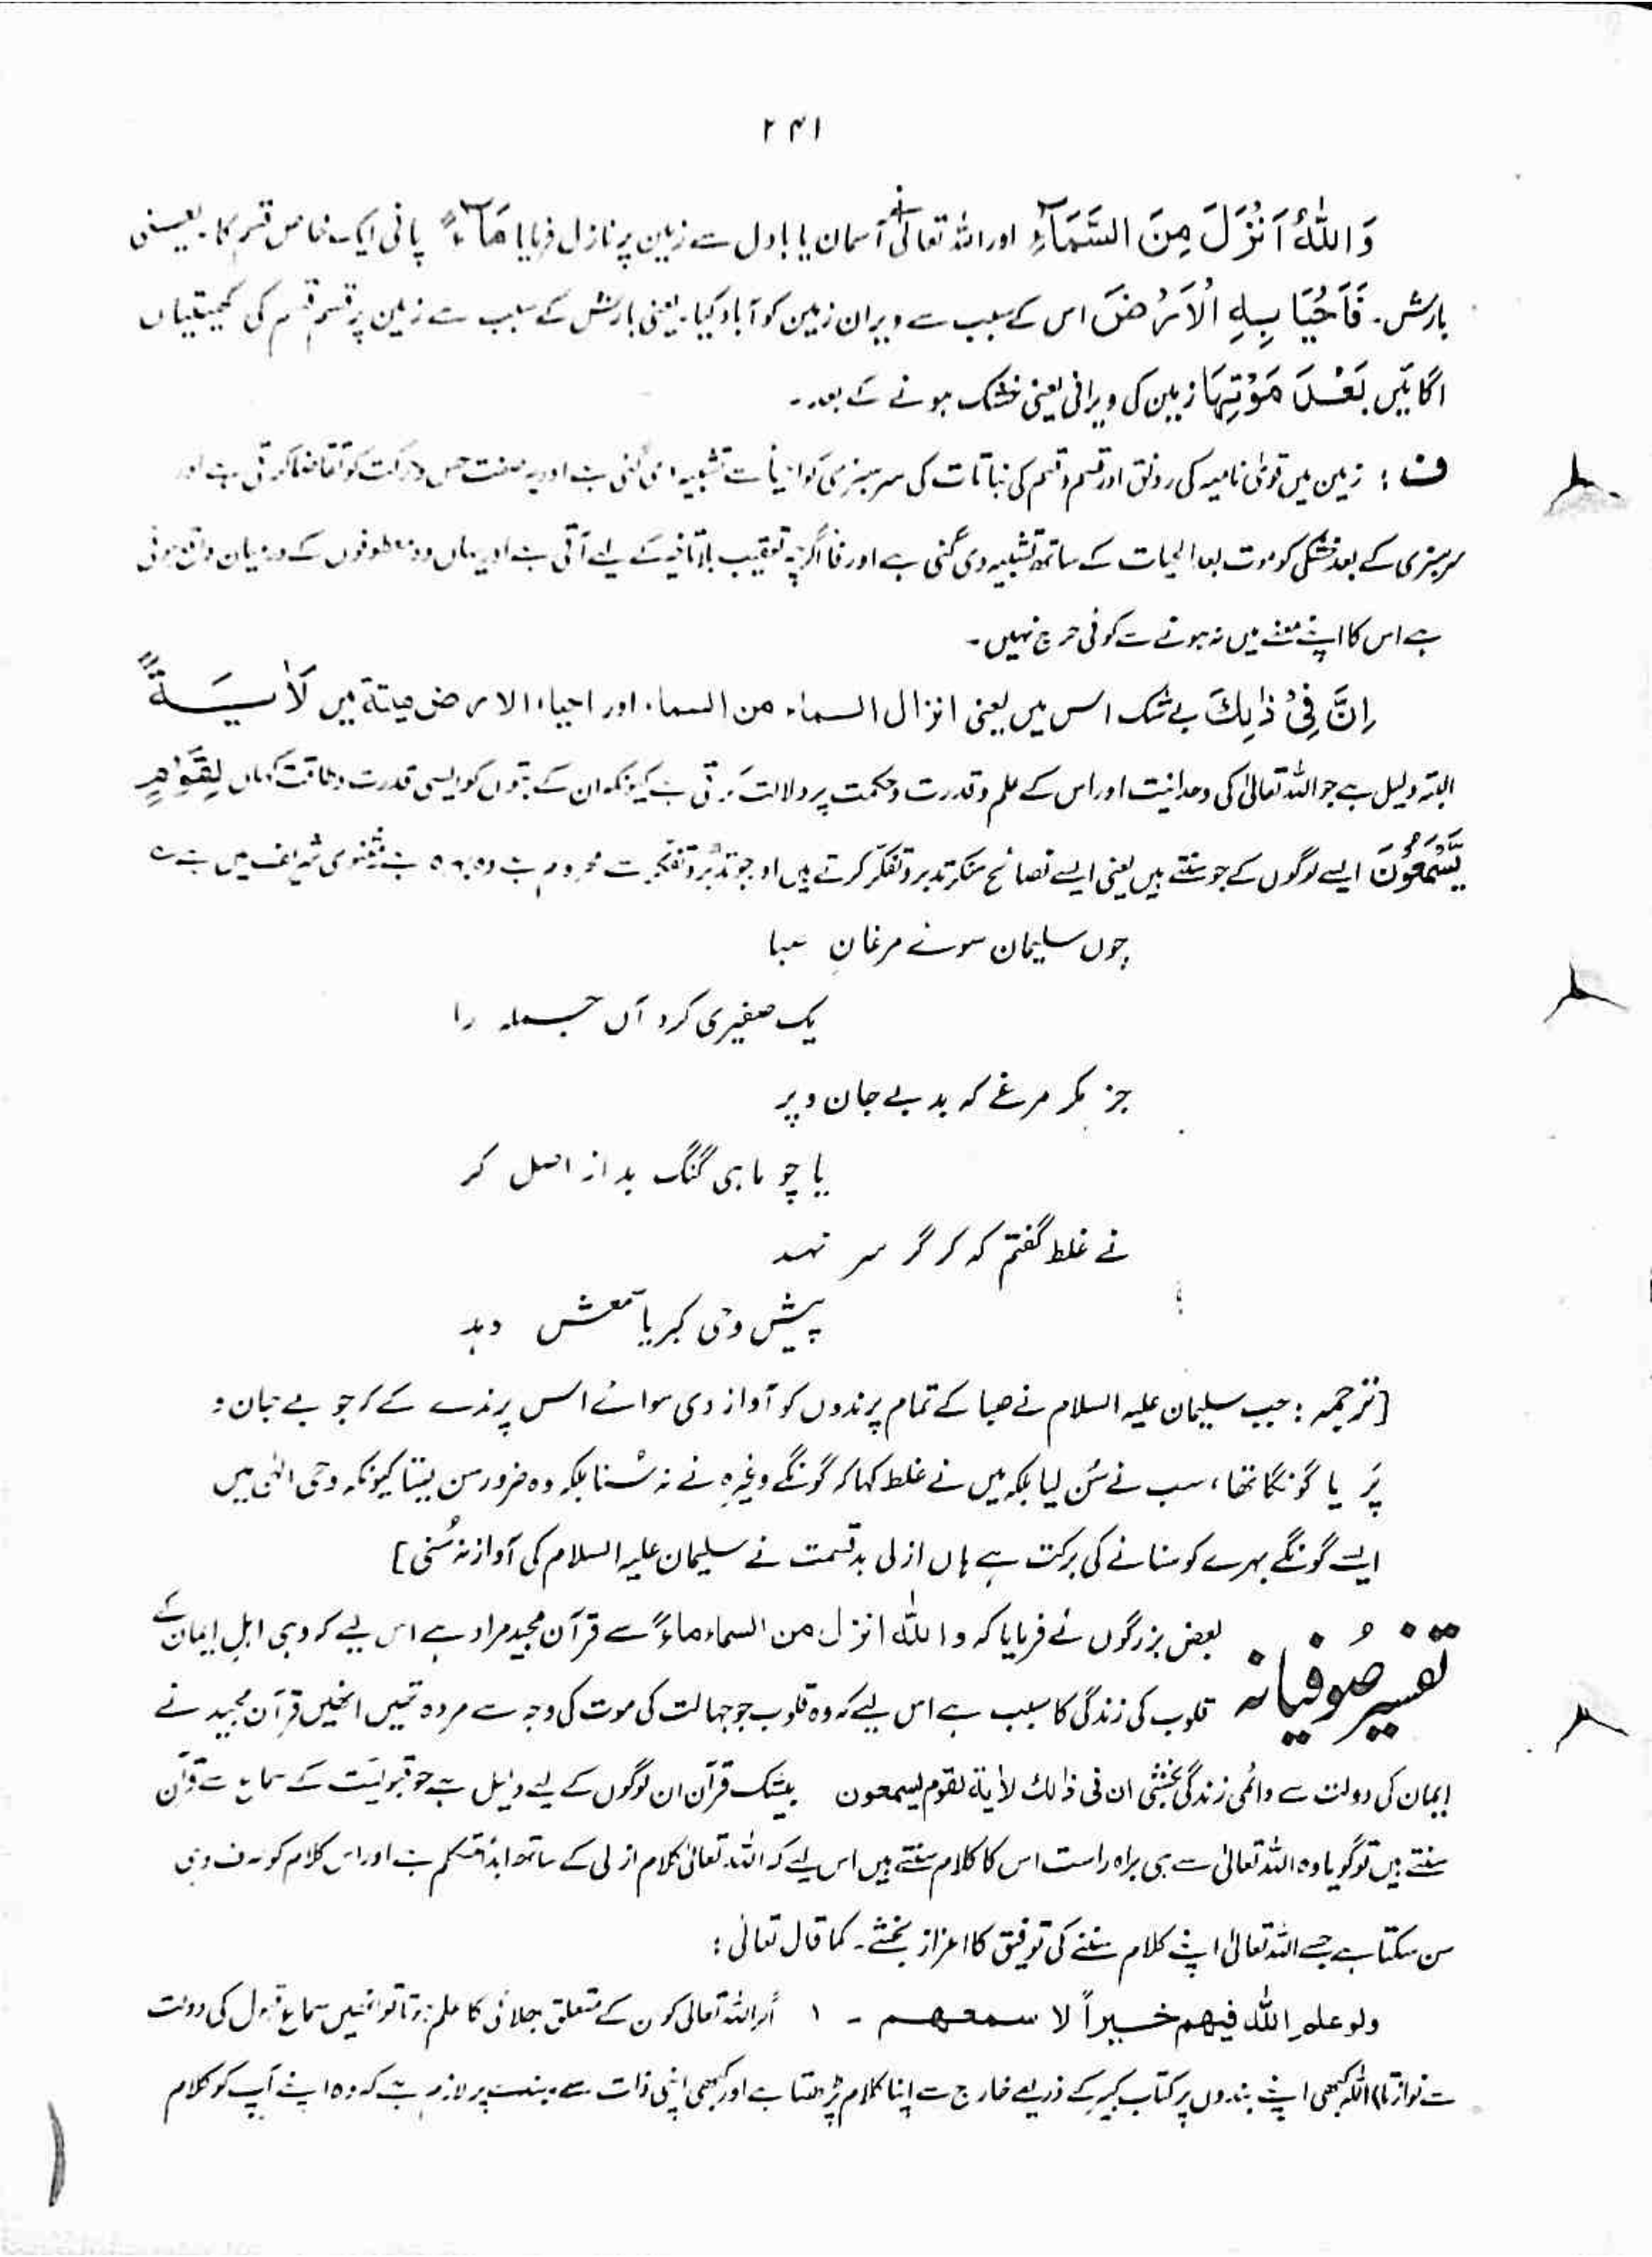 ۲۴۱
وَاللّٰہُ اَنْزَلَ مِنَ السَّمَآءِ اور اللہ تعالیٰ نے آسمان یا بادل سے زمین پر نازل فرمایا مَآءً پانی ایک خاص قسم کا۔ یعنی
بارش۔ فَاَحْیَا بِہِ الْاَرْضَ اس کے سبب سے ویران زمین کو آباد کیا۔ یعنی بارش کے سبب سے زمین پر قسم قسم کی کھیتیاں
اگائیں بَعْدَ مَوْتِہَا زمین کی ویرانی یعنی خشک ہونے کے بعد۔
ف : زمین میں قویٰ نامیہ کی رونق اور قسم و قسم کی نباتات کی سرسبزی کو احیأ سے تشبیہ دی گئی ہے اور یہ صفت حس و حرکت کو تقاضا کرتی ہے اور
سرسبزی کے بعد خشکی کو موت بعد الحیات کے ساتھ تشبیہ دی گئی ہے اور فا اگرچہ تعقیب بلا تاخیر کے لیے آتی ہے اور یہاں دو معطوفوں کے درمیان واقع ہوئی
ہے اس کا اپنے معنے میں نہ ہونے سے کوئی حرج نہیں۔
اِنَّ فِیْ ذٰلِکَ بے شک اس میں یعنی انزال السماء من السماء اور احیاء الارض میتة میں لَاٰیَۃً
البتہ دلیل ہے جو اللہ تعالیٰ کی وحدانیت اور اس کے علم و قدرت و حکمت پر دلالت کرتی ہے کیونکہ ان کے بتوں کو ایسی قدرت و طاقت کہاں لِقَوْمٍ
یَّسْمَعُوْنَ ایسے لوگوں کے جو سنتے ہیں یعنی ایسے نصائح سنکر تدبر و تفکر کرتے ہیں اور جو تدبر و تفکر سے محروم ہے وہ بہرہ ہے مثنوی شریف میں ہے ؎
چوں سلیمان سوئے مرغان سبا
یک صفیری کرد آں جملہ را
جز مگر مرغے کہ بد بے جان و پر
یا چو ماہی گنگ بد از اصل کر
نے غلط گفتم کہ کر گر سر نہد
پیش وحی کبریا سمعش دہد
[ترجمہ : جب سلیمان علیہ السلام نے صبا کے تمام پرندوں کو آواز دی سوائے اس پرندے کے کہ جو بے جان و
پَر یا گونگا تھا، سب نے سُن لیا بلکہ میں نے غلط کہا کہ گونگے وغیرہ نے نہ سُنا بلکہ وہ ضرور سن لیتا کیونکہ وحی الٰہی میں
ایسے گونگے بہرے کو سنانے کی برکت ہے ہاں ازلی بدقسمت نے سلیمان علیہ السلام کی آواز نہ سُنی]
تفسیر صُوفیانہ بعض بزرگوں نے فرمایا کہ واللہ انزل من السماء ماءً سے قرآن مجید مراد ہے اس لیے کہ وہی اہل ایمان کے
قلوب کی زندگی کا سبب ہے اس لیے کہ وہ قلوب جو جہالت کی موت کی وجہ سے مردہ تھیں انھیں قرآن مجید نے
ایمان کی دولت سے دائمی زندگی بخشی ان فی ذالك لأیة لقوم یسمعون بیشک قرآن ان لوگوں کے لیے دلیل ہے جو قبولیت کے سماع سے قرآن
سنتے ہیں تو گویا وہ اللہ تعالیٰ سے ہی براہ راست اس کا کلام سنتے ہیں اس لیے کہ اللہ تعالیٰ کلام ازلی کے ساتھ ابداً متکلم ہے اور اس کلام کو صرف وہی
سن سکتا ہے جسے اللہ تعالیٰ اپنے کلام سننے کی توفیق کا اعزاز بخشے۔ کما قال تعالیٰ :
ولو علم اللہ فیھم خیراً لا سمعھم - ۱ اگر اللہ تعالیٰ کو ن کے متعلق بھلائی کا علم ہوتا تو انھیں سماع قبول کی دولت
سے نوازتا) اللہ کبھی اپنے بندوں پر کتاب کبیر کے ذریعے خارج سے اپنا کلام پڑھتا ہے اور کبھی اپنی ذات سے۔ بندے پر لازم ہے کہ وہ اپنے آپ کو کلام